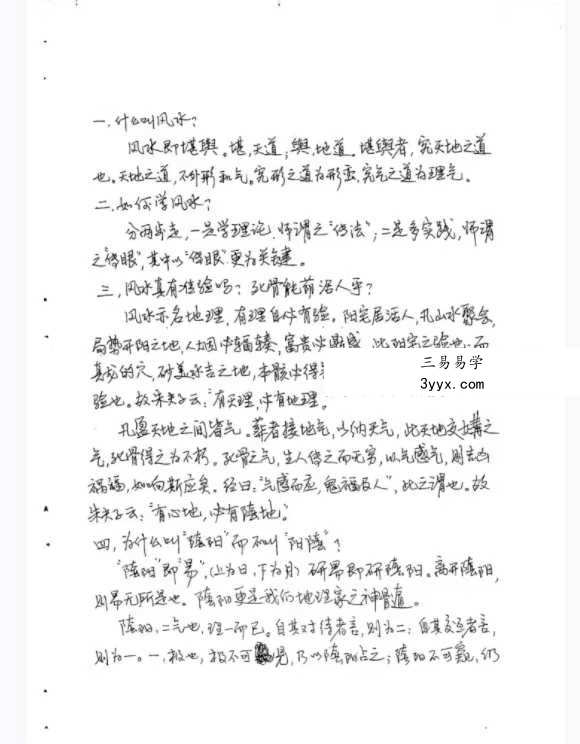 一.什么叫风水?
风水即堪舆。堪,天道;舆,地道。堪舆者,究天地之道
也。天地之道,不外形和气。究形之道为形峦,究气之道为理气。
二.如何学风水?
分两步走,一是学理论.师谓之“传法”;二是多实践,师谓
之“传眼”,其中以“传眼”更为关键。
三,风水真有准验吗?死骨能荫活人乎?
风水亦名地理,有理自必有验。阳宅居活人,凡山水聚会,
局势开阳之地,人烟必辐辏,富贵必鼎盛 此阳宅之验也.而
真龙的穴,砂美水吉之地,本骸必得
验也。故朱夫子云:“有天理,必有地理。
凡盈天地之间皆气。葬者接地气,以纳天气,此天地交媾之
气,死骨得之为不朽。死骨之气,生人传之而无穷,以气感气,则吉凶
祸福,如向斯应矣。经曰:“气感而应,鬼福及人”,此之谓也。故
朱夫子云:“有心地,必有陰地。”
四,为什么叫“陰阳”而不叫“阳陰”?
“陰阳”即“易”,(上为日,下为月) 研易即研陰阳。离开陰阳,
则易无所是也。陰阳更是我们地理家之神骨道。
陰阳,二气也,理一而已。自其对待者言,则为二;自其交迭者言,
则为一。一,极也,极不可见,乃以陰阳占之;陰阳不可窥,仍
三易易学
3yyx.com